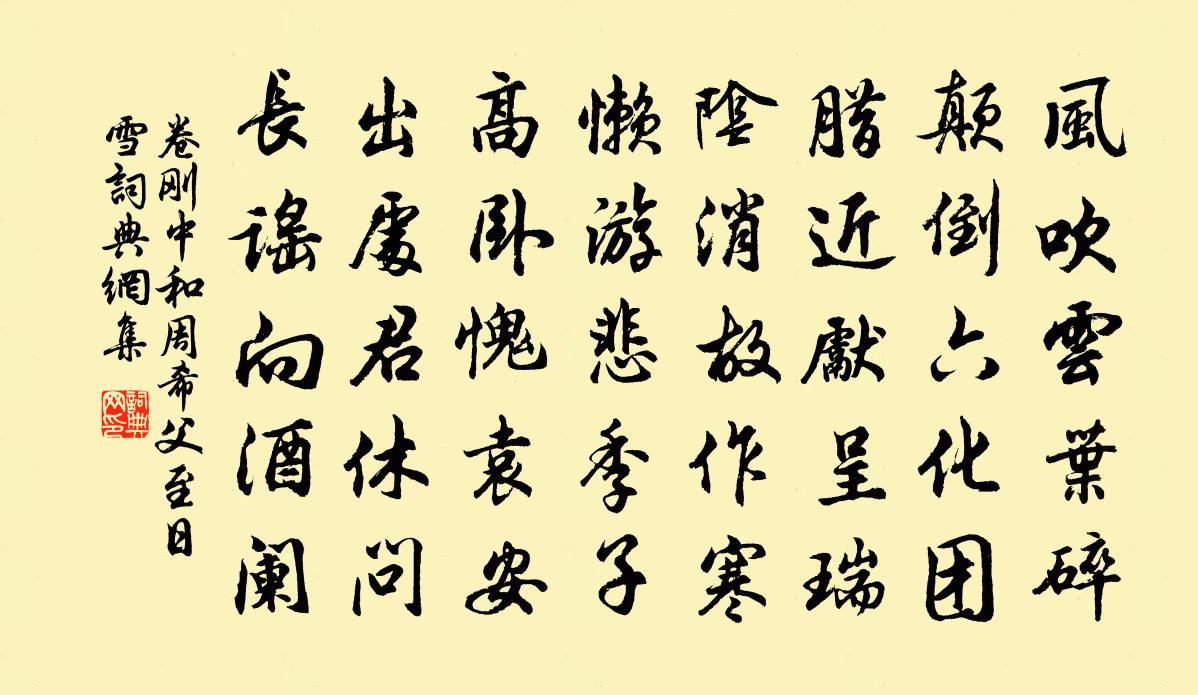 風吹雲葉碎
顛倒六化团
腊近獻呈瑞
陰消故作寒
懶游悲季子
高卧愧袁安
出處君休问
長謠向酒阑
卷刚中和周希父至日
雪詞典網集
詞典网印